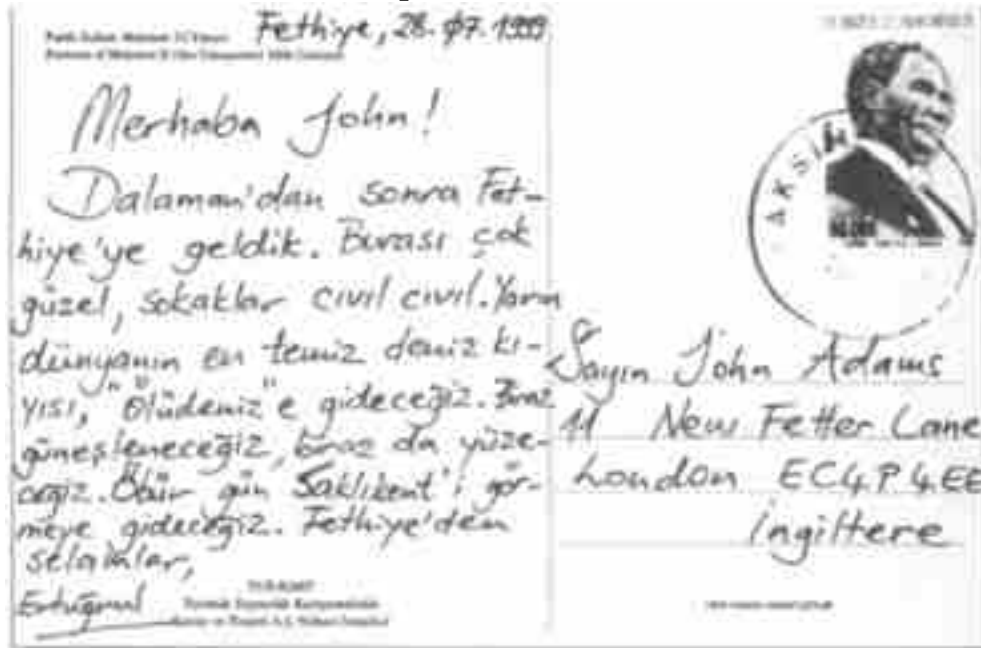 Fethiye, 28.07.1999
Merhaba John!
Dalaman'dan sonra Fet-
hiye'ye geldik. Burası çok
güzel, sokaklar cıvıl cıvıl. Yarın
dünyanın en temiz deniz kı-
yısı, "Ölüdeniz"e gideceğiz. Biraz
güneşleneceğiz, biraz da yüze-
ceğiz. Öbür gün Saklıkent'i gör-
meye gideceğiz. Fethiye'den
selamlar,
Ertuğrul
AKSİM
Sayın John Adams
11 New Fetter Lane
London EC4P 4EE
İngiltere